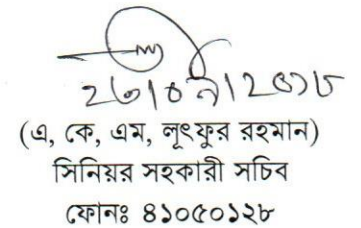 (এ, কে, এম, লূৎফুর রহমান)
সিনিয়র সহকারী সচিব
ফোনঃ ৪১০৫০১২৮